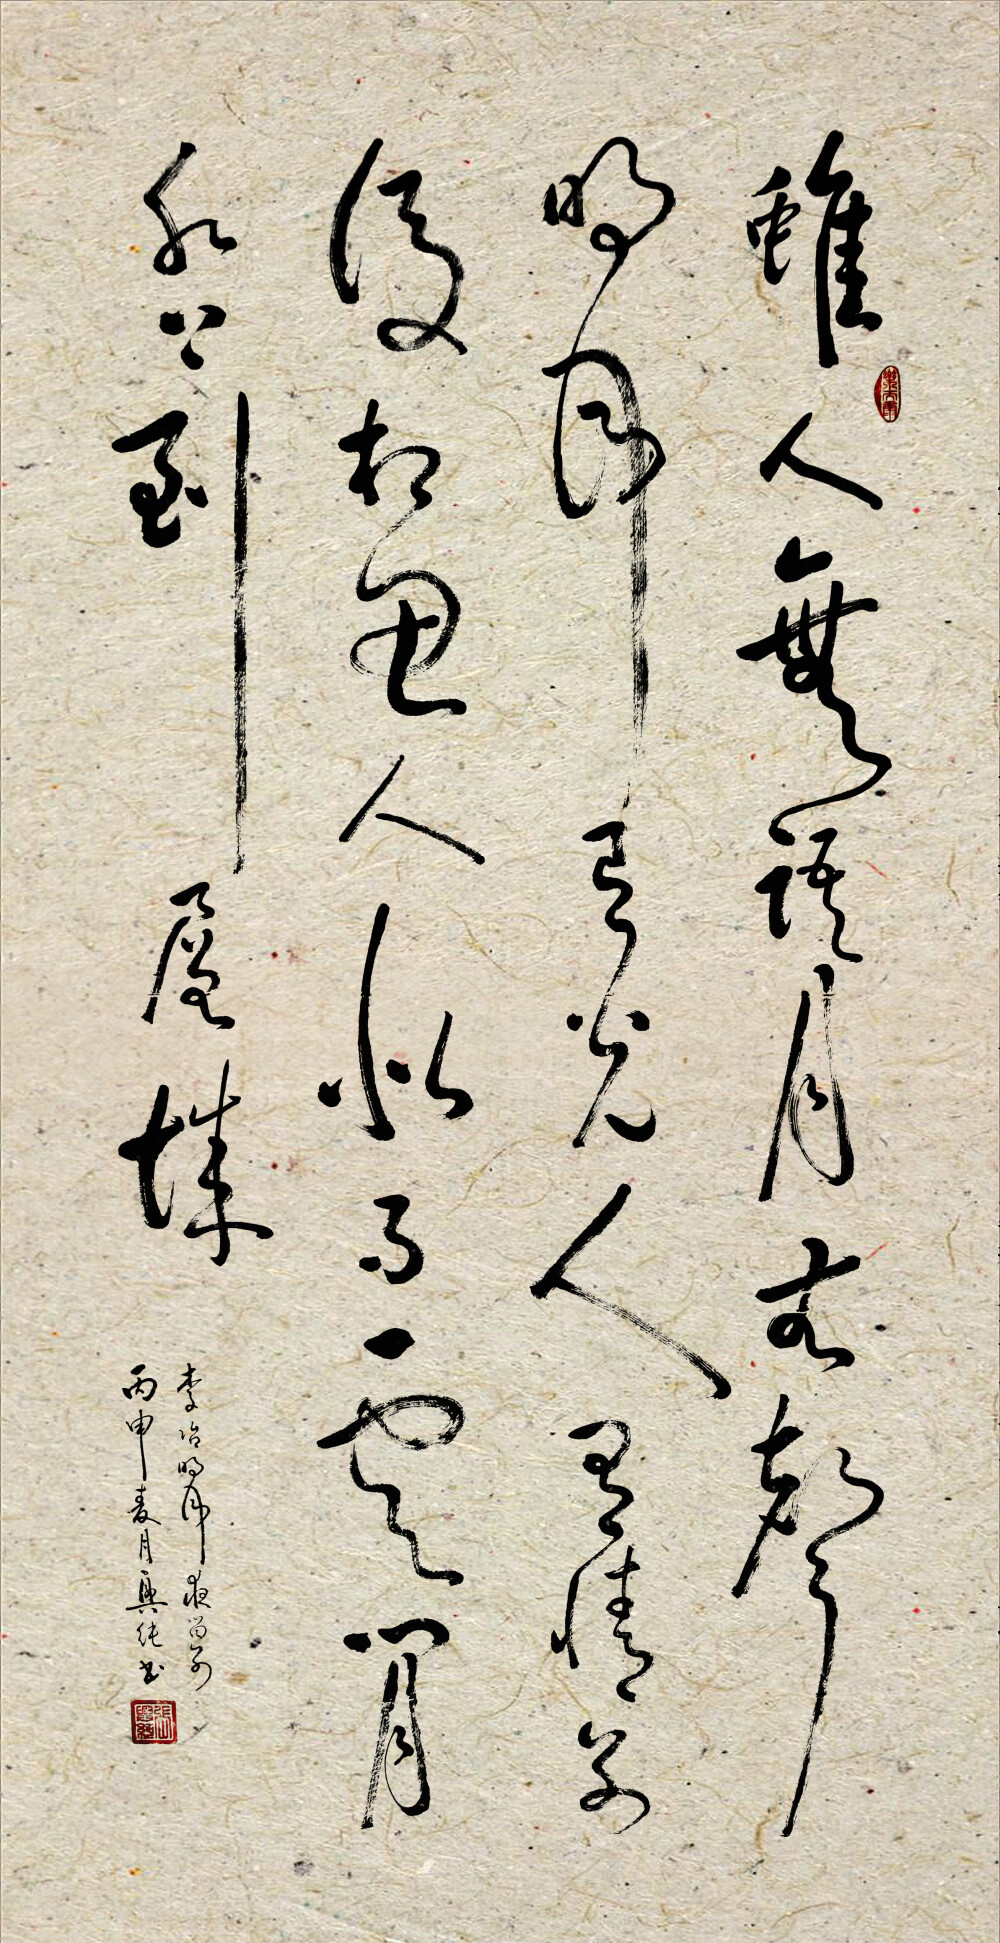 離人無語月无聲
明月有光人有情别
後相思人似月雲間
水上到層城
李冶明月夜留别
丙申麦月興纯书